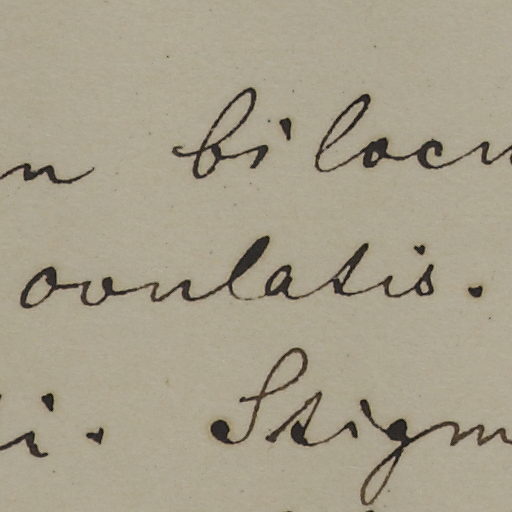 bilocu
ovulatis.
i. Stigm